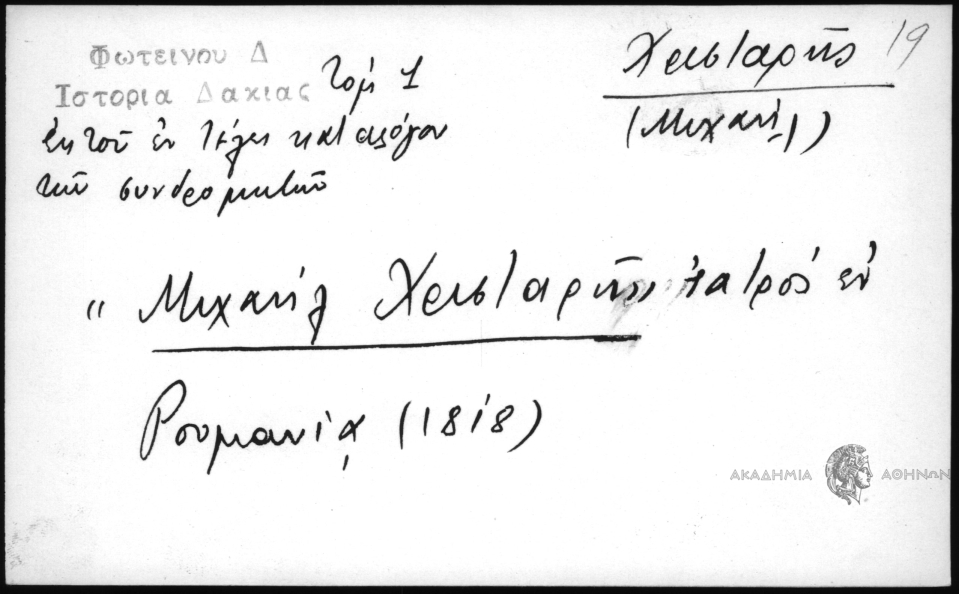 Φωτεινου Δ
Ιστορια Δακιας Τομ 1
ἐκ τοῦ ἐν τέλει καταλόγου
τῶν συνδρομητῶν
Χρισταρῆς 19
(Μιχαήλ)
" Μιχαήλ Χρισταρῆς ἰατρός ἐν
Ρουμανίᾳ (1818)
ΑΚΑΔΗΜΙΑ ΑΘΗΝΩΝ